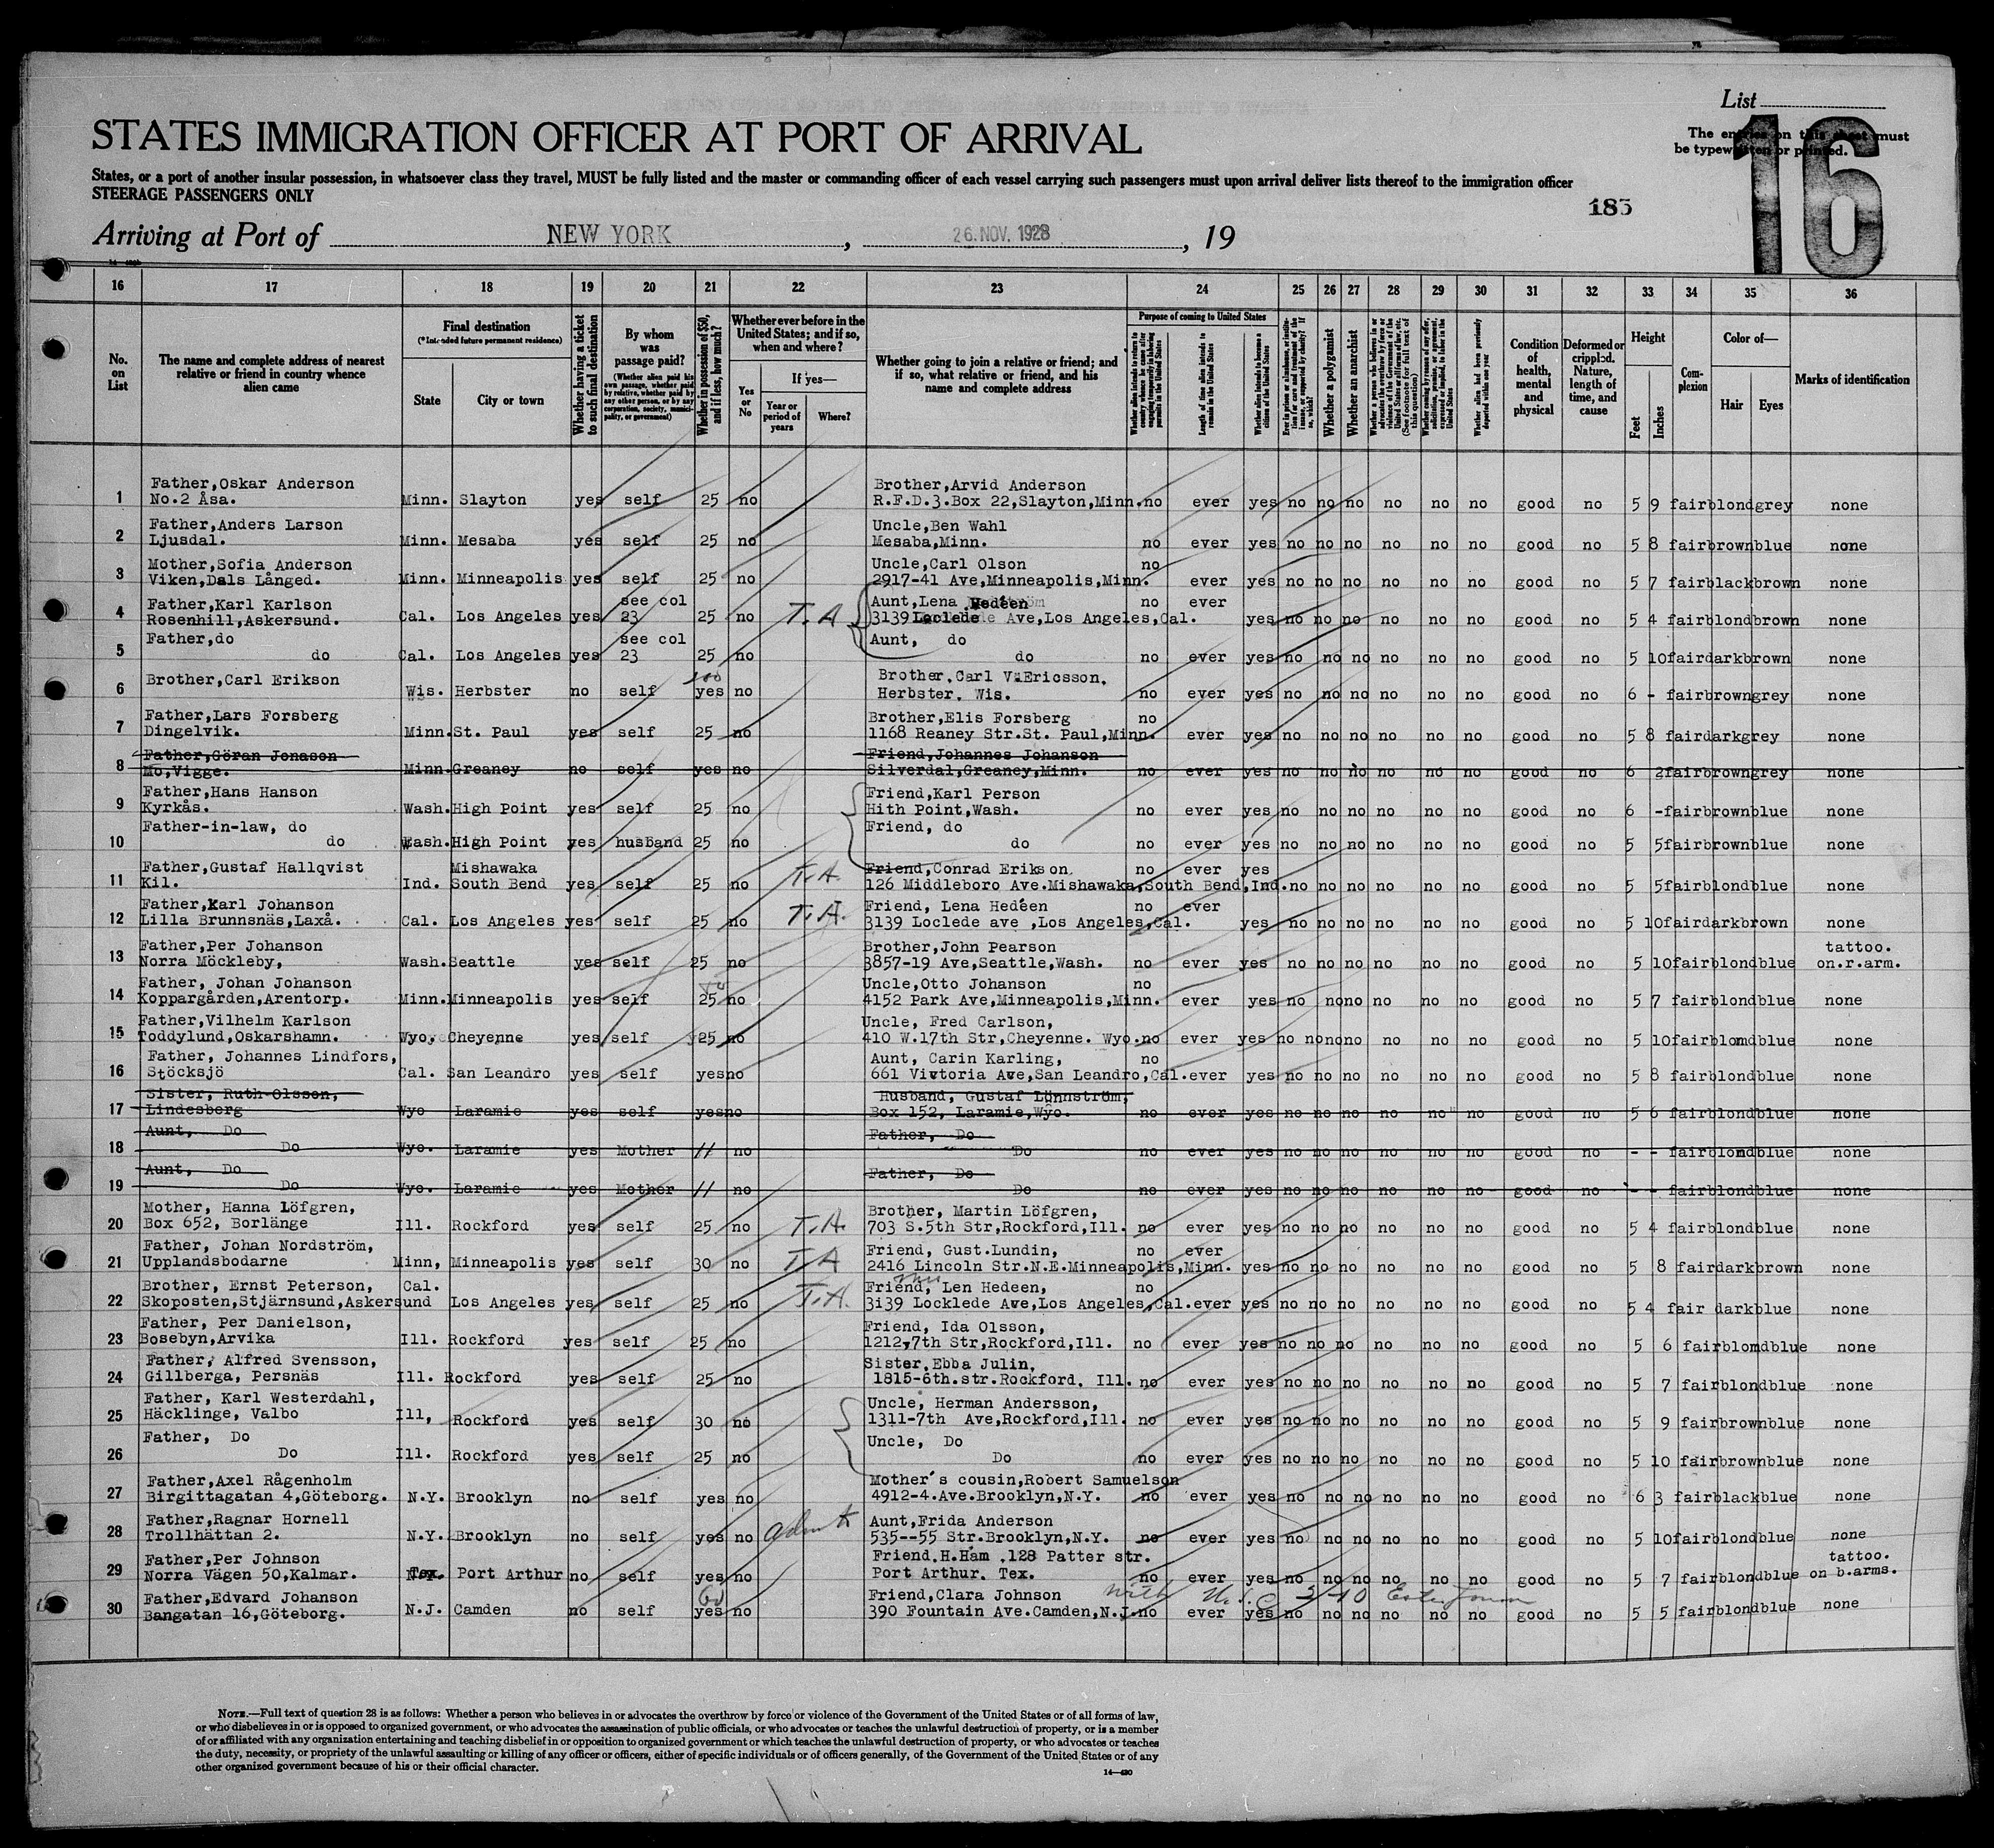 List
16
The entries on this sheet must
be typewritten or printed.
STATES IMMIGRATION OFFICER AT PORT OF ARRIVAL
States, or a port of another insular possession, in whatsoever class they travel, MUST be fully listed and the master or commanding officer of each vessel carrying such passengers must upon arrival deliver lists thereof to the immigration officer
STEERAGE PASSENGERS ONLY
183
Arriving at Port of NEW YORK, 26. NOV. 1928, 19
16 17 18 19 20 21 22 23 24 25 26 27 28 29 30 31 32 33 34 35 36
No. on List
The name and complete address of nearest relative or friend in country whence alien came
Final destination
(*Intended future permanent residence)
State
City or town
Whether having a ticket to such final destination
By whom was passage paid?
(Whether alien paid his own passage, whether paid by relative, whether paid by any other person, or by any corporation, society, municipality, or government)
Whether in possession of $50, and if less, how much?
Whether ever before in the United States; and if so, when and where?
Yes or No
If yes—
Year or period of years
Where?
Whether going to join a relative or friend; and if so, what relative or friend, and his name and complete address
Purpose of coming to United States
Whether alien intends to return to country whence he came after engaging temporarily in laboring pursuits in the United States
Length of time alien intends to remain in the United States
Whether alien intends to become a citizen of the United States
Ever in prison or almshouse, or institution for care and treatment of the insane, or supported by charity? If so, which?
Whether a polygamist
Whether an anarchist
Whether a person who believes in or advocates the overthrow by force or violence of the Government of the United States or all forms of law, etc. (See footnote for full text of this question)
Whether coming by reason of any offer, solicitation, promise, or agreement, expressed or implied, to labor in the United States
Whether alien had been previously deported within one year
Condition of health, mental and physical
Deformed or crippled. Nature, length of time, and cause
Height
Feet
Inches
Complexion
Color of—
Hair
Eyes
Marks of identification
Father,Oskar Anderson Brother,Arvid Anderson
1 No.2 Åsa. Minn. Slayton yes self 25 no R.F.D.3.Box 22,Slayton,Minn. no ever yes no no no no no no good no 5 9 fair blond grey none
Father,Anders Larson Uncle,Ben Wahl
2 Ljusdal. Minn. Mesaba yes self 25 no Mesaba,Minn. no ever yes no no no no no no good no 5 8 fair brown blue none
Mother,Sofia Anderson Uncle,Carl Olson no
3 Viken,Dals Långed. Minn. Minneapolis yes self 25 no 2917-41 Ave,Minneapolis,Minn. ever yes no no no no no no good no 5 7 fair black brown none
Father,Karl Karlson see col Aunt,Lena Hedéen no ever
4 Rosenhill,Askersund. Cal. Los Angeles yes 23 25 no T.A 3139 Loclede Ave,Los Angeles,Cal. yes no no no no no no good no 5 4 fair blond brown none
Father,do see col Aunt, do
5 do Cal. Los Angeles yes 23 25 no do no ever yes no no no no no no good no 5 10 fair dark brown none
Brother,Carl Erikson 100 Brother,Carl V.Ericsson,
6 Wis. Herbster no self yes no Herbster. Wis. no ever yes no no no no no no good no 6 - fair brown grey none
Father,Lars Forsberg Brother,Elis Forsberg no
7 Dingelvik. Minn. St. Paul yes self 25 no 1168 Reaney Str.St. Paul,Minn. ever yes no no no no no no good no 5 8 fair dark grey none
Father,Göran Jonason Friend,Johannes Johanson
8 Mo,Vigge. Minn. Greaney no self yes no Silverdal,Greaney,Minn. no ever yes no no no no no no good no 6 2 fair brown grey none
Father,Hans Hanson Friend,Karl Person
9 Kyrkås. Wash. High Point yes self 25 no Hith Point,Wash. no ever yes no no no no no no good no 6 - fair brown blue none
Father-in-law, do Friend, do
10 do Wash. High Point yes husband 25 no do no ever yes no no no no no no good no 5 5 fair brown blue none
Father,Gustaf Hallqvist Mishawaka Friend,Conrad Erikson no ever yes
11 Kil. Ind. South Bend yes self 25 no T.A. 126 Middleboro Ave.Mishawaka,South Bend,Ind. no no no no no no good no 5 5 fair blond blue none
Father,Karl Johanson Friend, Lena Hedéen no ever
12 Lilla Brunnsnäs,Laxå. Cal. Los Angeles yes self 25 no T.A. 3139 Loclede ave ,Los Angeles,Cal. yes no no no no no no good no 5 10 fair dark brown none
Father,Per Johanson Brother,John Pearson tattoo.
13 Norra Möckleby, Wash. Seattle yes self 25 no 3857-19 Ave,Seattle,Wash. no ever yes no no no no no no good no 5 10 fair blond blue on.r.arm.
Father, Johan Johanson Uncle,Otto Johanson no
14 Koppargården,Arentorp. Minn. Minneapolis yes self 25 no 4152 Park Ave,Minneapolis,Minn. ever yes no no no no no no good no 5 7 fair blond blue none
Father,Vilhelm Karlson Uncle, Fred Carlson,
15 Toddylund,Oskarshamn. Wyo, Cheyenne yes self 25 no 410 W.17th Str,Cheyenne. Wyo. no ever yes no no no no no no good no 5 10 fair blond blue none
Father, Johannes Lindfors, Aunt, Carin Karling, no
16 Stöcksjö Cal. San Leandro yes self yes no 661 Victoria Ave,San Leandro,Cal. ever yes no no no no no no good no 5 8 fair blond blue none
Sister, Ruth Olsson, Husband, Gustaf Lönnström,
17 Lindesberg Wyo Laramie yes self yes no Box 152, Laramie,Wyo. no ever yes no no no no no no good no 5 6 fair blond blue none
Aunt, Do Father, Do
18 Do Wyo. Laramie yes Mother // no Do no ever yes no no no no no no good no - - fair blond blue none
Aunt, Do Father, Do
19 Do Wyo. Laramie yes Mother // no Do no ever yes no no no no no no good no - - fair blond blue none
Mother, Hanna Löfgren, Brother, Martin Löfgren,
20 Box 652, Borlänge Ill. Rockford yes self 25 no T.A. 703 S.5th Str,Rockford,Ill. no ever yes no no no no no no good no 5 4 fair blond blue none
Father, Johan Nordström, Friend, Gust.Lundin, no ever
21 Upplandsbodarne Minn, Minneapolis yes self 30 no T.A 2416 Lincoln Str.N.E.Minneapolis,Minn. yes no no no no no no good no 5 8 fair dark brown none
Brother, Ernst Peterson, Cal. Friend, Len Hedeen, no
22 Skoposten,Stjärnsund,Askersund Los Angeles yes self 25 no T.A. 3139 Locklede Ave,Los Angeles,Cal. ever yes no no no no no no good no 5 4 fair dark blue none
Father, Per Danielson, Friend, Ida Olsson,
23 Bosebyn,Arvika Ill. Rockford yes self 25 no 1212,7th Str,Rockford,Ill. no ever yes no no no no no no good no 5 6 fair blond blue none
Father, Alfred Svensson, Sister,Ebba Julin,
24 Gillberga, Persnäs Ill. Rockford yes self 25 no 1815-6th.str.Rockford. Ill. no ever yes no no no no no no good no 5 7 fair blond blue none
Father, Karl Westerdahl, Uncle, Herman Andersson,
25 Häcklinge, Valbo Ill, Rockford yes self 30 no 1311-7th Ave,Rockford,Ill. no ever yes no no no no no no good no 5 9 fair brown blue none
Father, Do Uncle, Do
26 Do Ill. Rockford yes self 25 no Do no ever yes no no no no no no good no 5 10 fair brown blue none
Father,Axel Rågenholm Mother's cousin,Robert Samuelson
27 Birgittagatan 4,Göteborg. N.Y. Brooklyn no self yes no 4912-4.Ave.Brooklyn,N.Y. no ever yes no no no no no no good no 6 3 fair black blue none
Father,Ragnar Hornell Aunt,Frida Anderson
28 Trollhättan 2. N.Y. Brooklyn no self yes no 535--55 Str.Brooklyn,N.Y. no ever yes no no no no no no good no 5 10 fair blond blue none
Father,Per Johnson Friend.H.Ham .128 Patter str. tattoo.
29 Norra Vägen 50,Kalmar. Tex. Port Arthur no self yes no Port Arthur. Tex. no ever yes no no no no no no good no 5 7 fair blond blue on b.arms.
Father,Edvard Johanson 60 Friend,Clara Johnson with
30 Bangatan 16,Göteborg. N.J. Camden no self yes no 390 Fountain Ave.Camden,N.J. no ever yes no no no no no no good no 5 5 fair blond blue none
NOTE.—Full text of question 28 is as follows: Whether a person who believes in or advocates the overthrow by force or violence of the Government of the United States or of all forms of law,
or who disbelieves in or is opposed to organized government, or who advocates the assassination of public officials, or who advocates or teaches the unlawful destruction of property, or is a member
of or affiliated with any organization entertaining and teaching disbelief in or opposition to organized government or which teaches the unlawful destruction of property, or who advocates or teaches
the duty, necessity, or propriety of the unlawful assaulting or killing of any officer or officers, either of specific individuals or of officers generally, of the Government of the United States or of any
other organized government because of his or their official character.
14—430